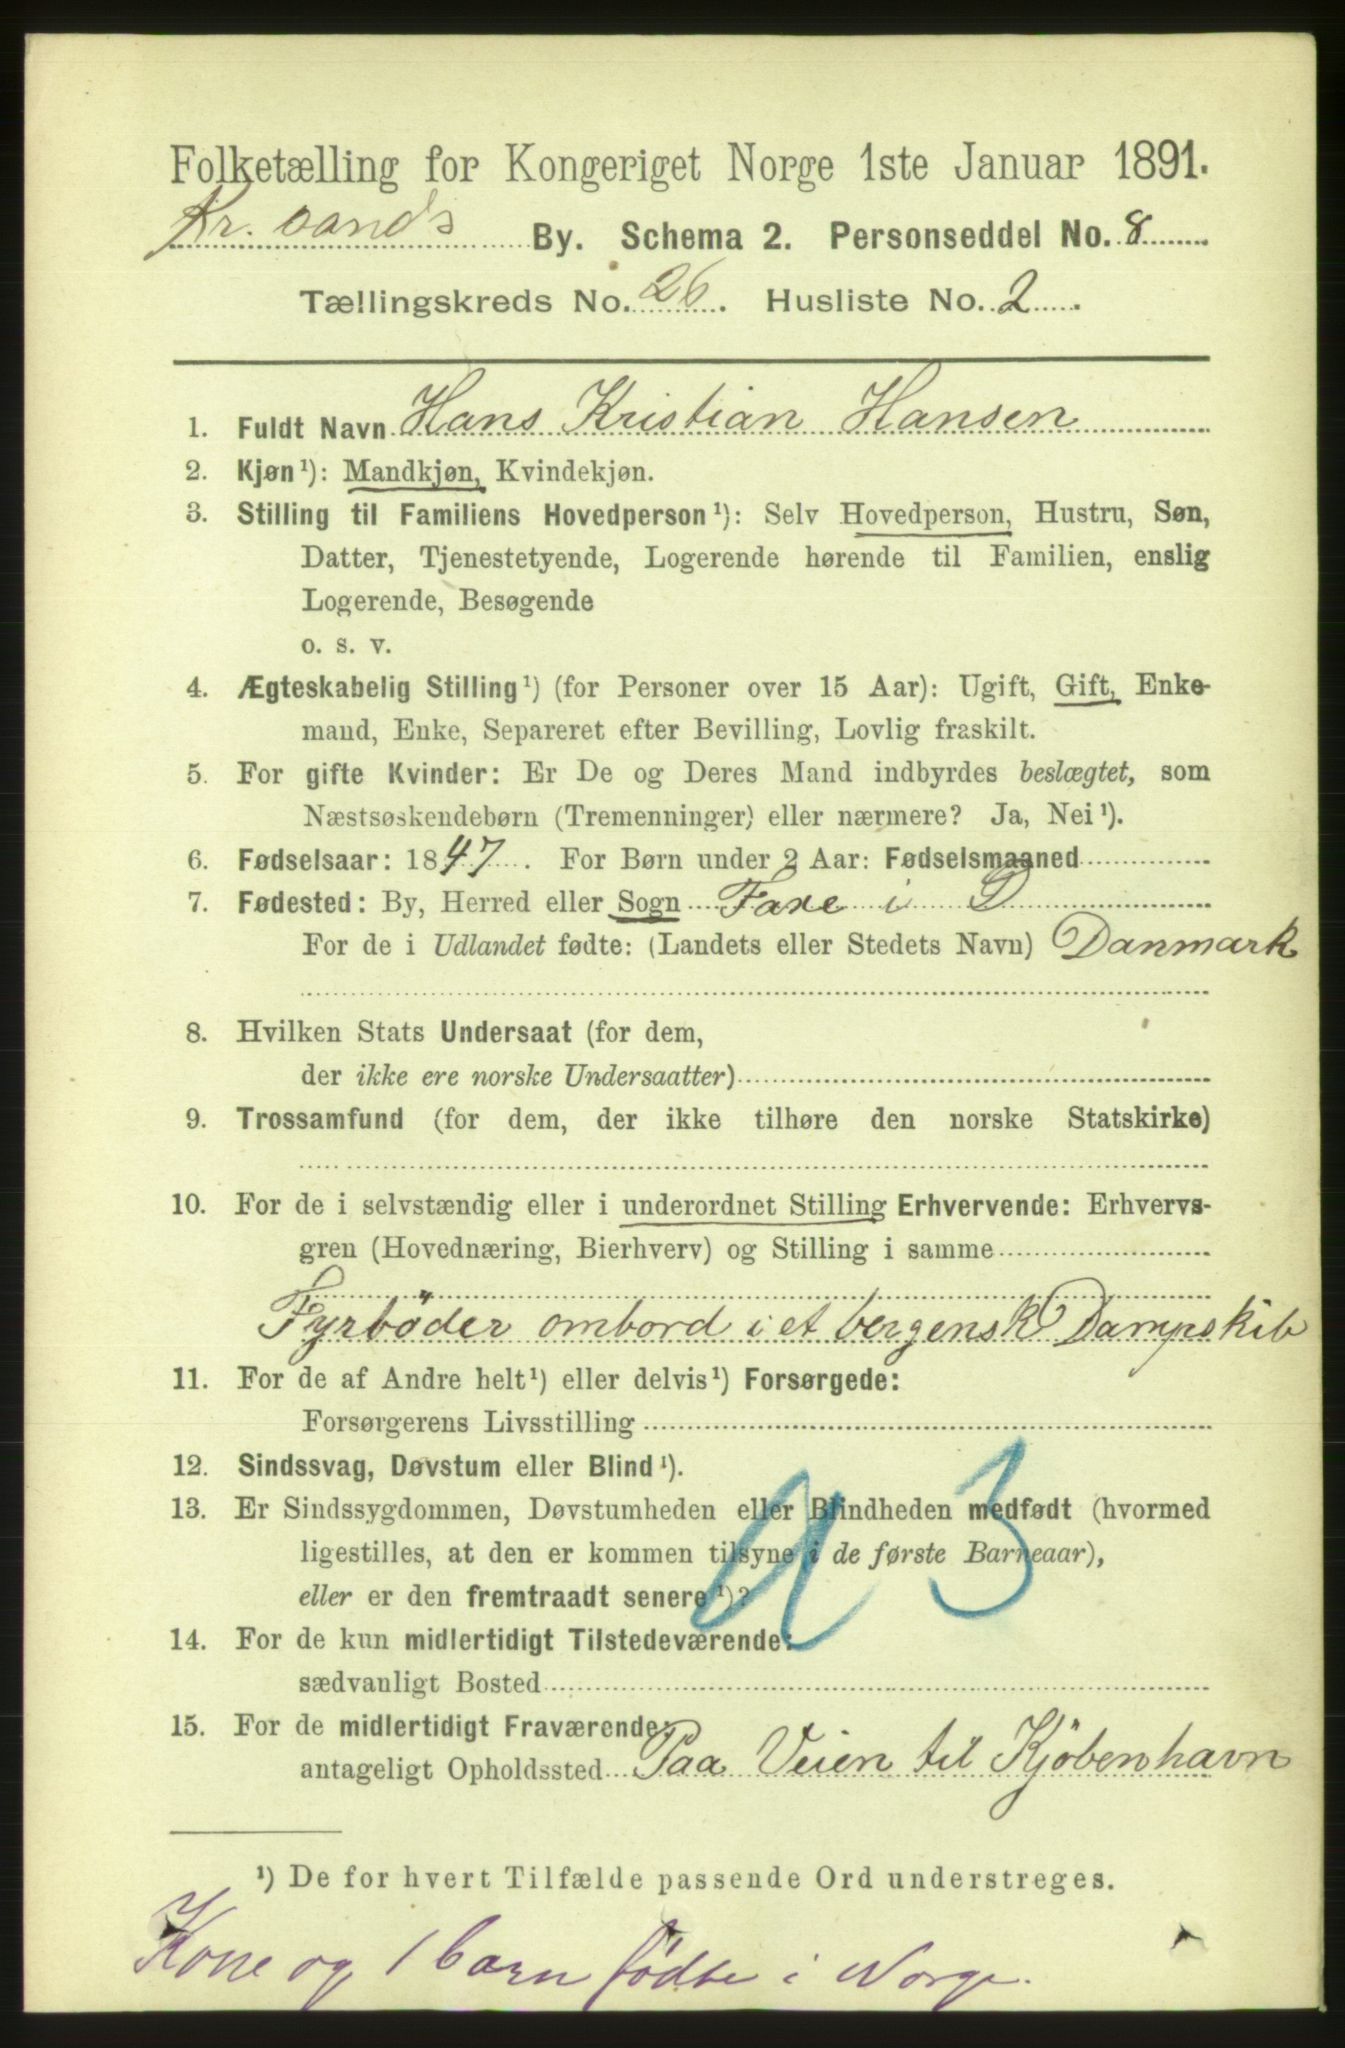 Folketælling for Kongeriget Norge 1ste Januar 1891.
Kr. sands By. Schema 2. Personseddel No. 8
Tællingskreds No. 26. Husliste No. 2.
1. Fuldt Navn Hans Kristian Hansen
2. Kjøn¹): Mandkjøn, Kvindekjøn.
3. Stilling til Familiens Hovedperson¹): Selv Hovedperson, Hustru, Søn,
Datter, Tjenestetyende, Logerende hørende til Familien, enslig
Logerende, Besøgende
o. s. v.
4. Ægteskabelig Stilling¹) (for Personer over 15 Aar): Ugift, Gift, Enke-
mand, Enke, Separeret efter Bevilling, Lovlig fraskilt.
5. For gifte Kvinder: Er De og Deres Mand indbyrdes beslægtet, som
Næstsøskendebørn (Tremenninger) eller nærmere? Ja, Nei¹).
6. Fødselsaar: 1847. For Børn under 2 Aar: Fødselsmaaned
7. Fødested: By, Herred eller Sogn Faxe i D
For de i Udlandet fødte: (Landets eller Stedets Navn) Danmark
8. Hvilken Stats Undersaat (for dem,
der ikke ere norske Undersaatter)
9. Trossamfund (for dem, der ikke tilhøre den norske Statskirke)
10. For de i selvstændig eller i underordnet Stilling Erhvervende: Erhvervs-
gren (Hovednæring, Bierhverv) og Stilling i samme
Fyrböder ombord i et bergensk Dampskib
11. For de af Andre helt¹) eller delvis¹) Forsørgede:
Forsørgerens Livsstilling
12. Sindssvag, Døvstum eller Blind¹).
13. Er Sindssygdommen, Døvstumheden eller Blindheden medfødt (hvormed
ligestilles, at den er kommen tilsyne i de første Barneaar),
eller er den fremtraadt senere¹)?
a 3
14. For de kun midlertidigt Tilstedeværende:
sædvanligt Bosted
15. For de midlertidigt Fraværende:
antageligt Opholdssted Paa Veien til Kjöbenhavn
¹) De for hvert Tilfælde passende Ord understreges.
Kone og 1 barn födte i Norge.